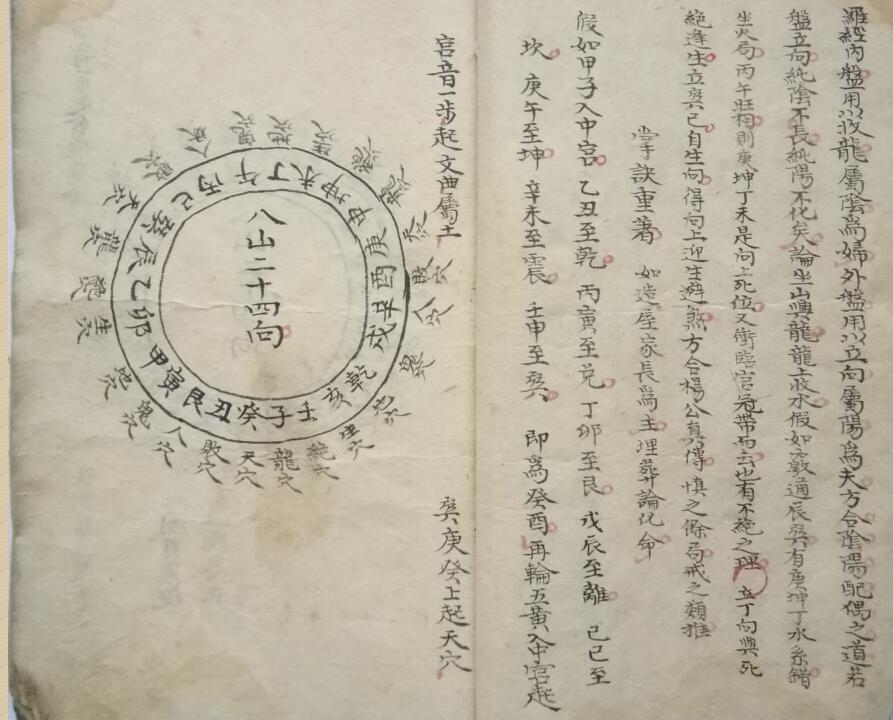 羅經內盤用以收龍屬陰為婦外盤用以立向屬陽為夫方合陰陽配偶之道若
盤立向純陰不長純陽不化矣論坐山與龍龍上收水假如辰巽有庚坤丁水系錯
坐火局丙午旺相則庚坤丁未是向上死位又衝臨官冠帶而去也有不絕之理 立丁向與死
絕逢生立巽巳自生向得向上迎生避煞方合楊公真傳慎之餘局戒之類推
掌訣重著 如造屋家長為主埋葬論化命
假如甲子入中宮 乙丑至乾 丙寅至兌 丁卯至艮 戊辰至離 己巳至
坎 庚午至坤 辛未至震 壬申至巽 即為癸酉再輪五黃入中宮起
宮音一步起文曲屬土
巽庚癸上起天穴
八山二十四向
壬子癸丑艮寅甲卯乙辰巽巳丙午丁未坤申庚酉辛戌乾亥
絕穴
龍穴
天穴
敗穴
人穴
鬼穴
地穴
生穴
絕穴
龍穴
天穴
敗穴
人穴
鬼穴
地穴
生穴
絕穴
龍穴
天穴
敗穴
人穴
鬼穴
地穴
生穴